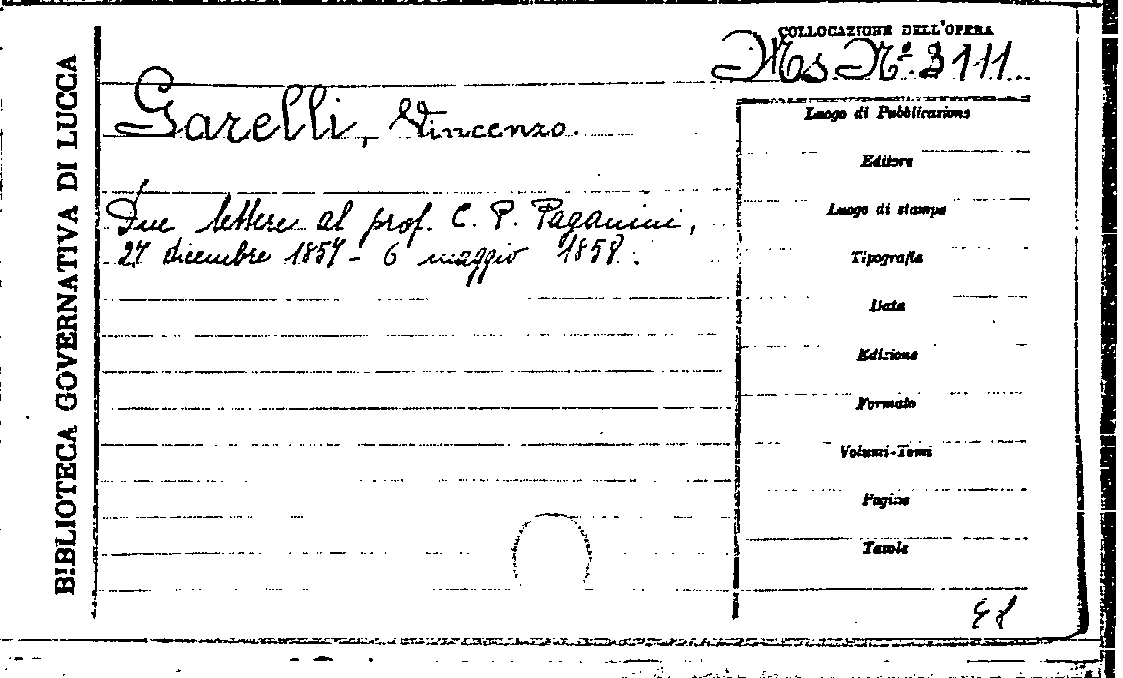 BIBLIOTECA GOVERNATIVA DI LUCCA
COLLOCAZIONE DELL'OPERA
Ms. Nº. 3111
Garelli, Vincenzo.
Due lettere al prof. C. P. Paganini,
27 dicembre 1857 - 6 maggio 1858.
Luogo di Pubblicazione
Editore
Luogo di stampa
Tipografia
Data
Edizione
Formato
Volumi-Tomi
Pagine
Tavole